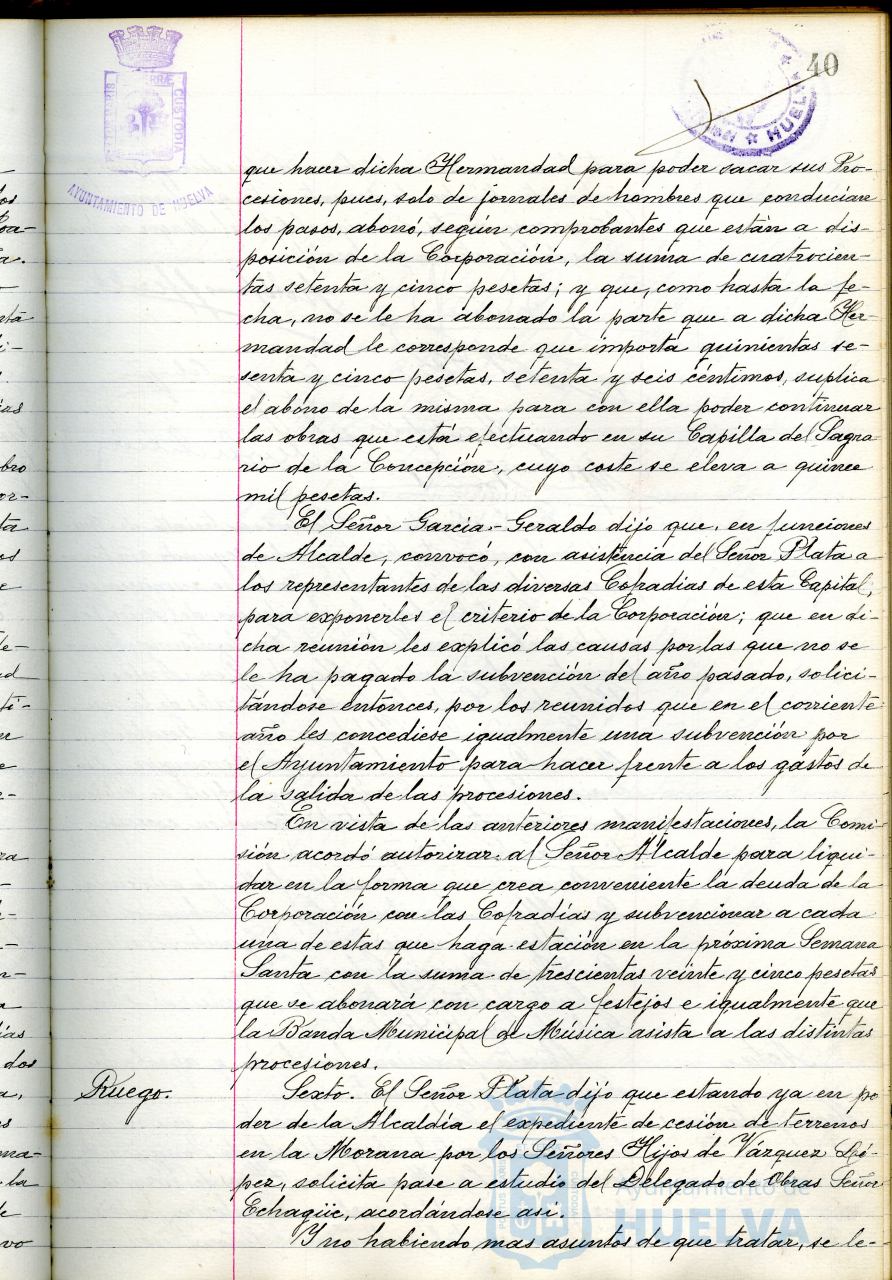 40
PORTUS MARIS ET TERRÆ CUSTODIA
AYUNTAMIENTO DE HUELVA
HUELVA
que hacer dicha Hermandad para poder sacar sus Pro-
cesiones, pues, solo de jornales de hombres que conducían
los pasos, abonó, según comprobantes que están a dis-
posición de la Corporación, la suma de cuatrocien-
tas setenta y cinco pesetas; y que, como hasta la fe-
cha, no se le ha abonado la parte que a dicha Her-
mandad le corresponde que importa quinientas se-
senta y cinco pesetas, setenta y seis céntimos, suplica
el abono de la misma para con ella poder continuar
las obras que está efectuando en su Capilla del Sagra
rio de la Concepción, cuyo coste se eleva a quince
mil pesetas.
El Señor García-Geraldo dijo que, en funciones
de Alcalde, convocó, con asistencia del Señor Plata a
los representantes de las diversas Cofradias de esta Capital,
para exponerles el criterio de la Corporación; que en di-
cha reunión les explicó las causas por las que no se
le ha pagado la subvención del año pasado, solici-
tándose entonces, por los reunidos que en el corriente
año les concediese igualmente una subvención por
el Ayuntamiento para hacer frente a los gastos de
la salida de las procesiones.
En vista de las anteriores manifestaciones, la Comi-
sión acordó autorizar al Señor Alcalde para liqui-
dar en la forma que crea conveniente la deuda de la
Corporación con las Cofradías y subvencionar a cada
una de estas que haga estación en la próxima Semana
Santa con la suma de trescientas veinte y cinco pesetas
que se abonará con cargo a festejos e igualmente que
la Banda Municipal de Música asista a las distintas
procesiones.
Ruego.
Sexto. El Señor Plata dijo que estando ya en po
der de la Alcaldía el expediente de cesión de terrenos
en la Morana por los Señores Hijos de Vázquez Ló-
pez, solicita pase a estudio del Delegado de Obras Señor
Echagüe, acordándose asi.
Y no habiendo mas asuntos de que tratar, se le-
Ayuntamiento de
HUELVA